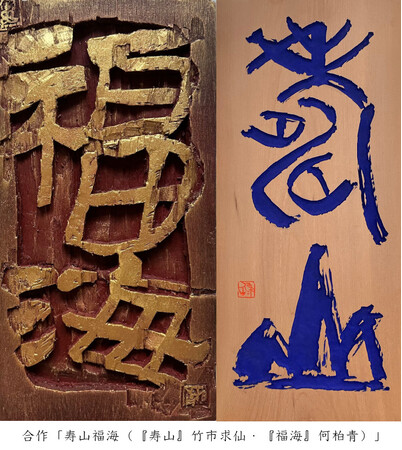 福海
寿山
合作「寿山福海(『寿山』竹市求仙・『福海』何柏青)」